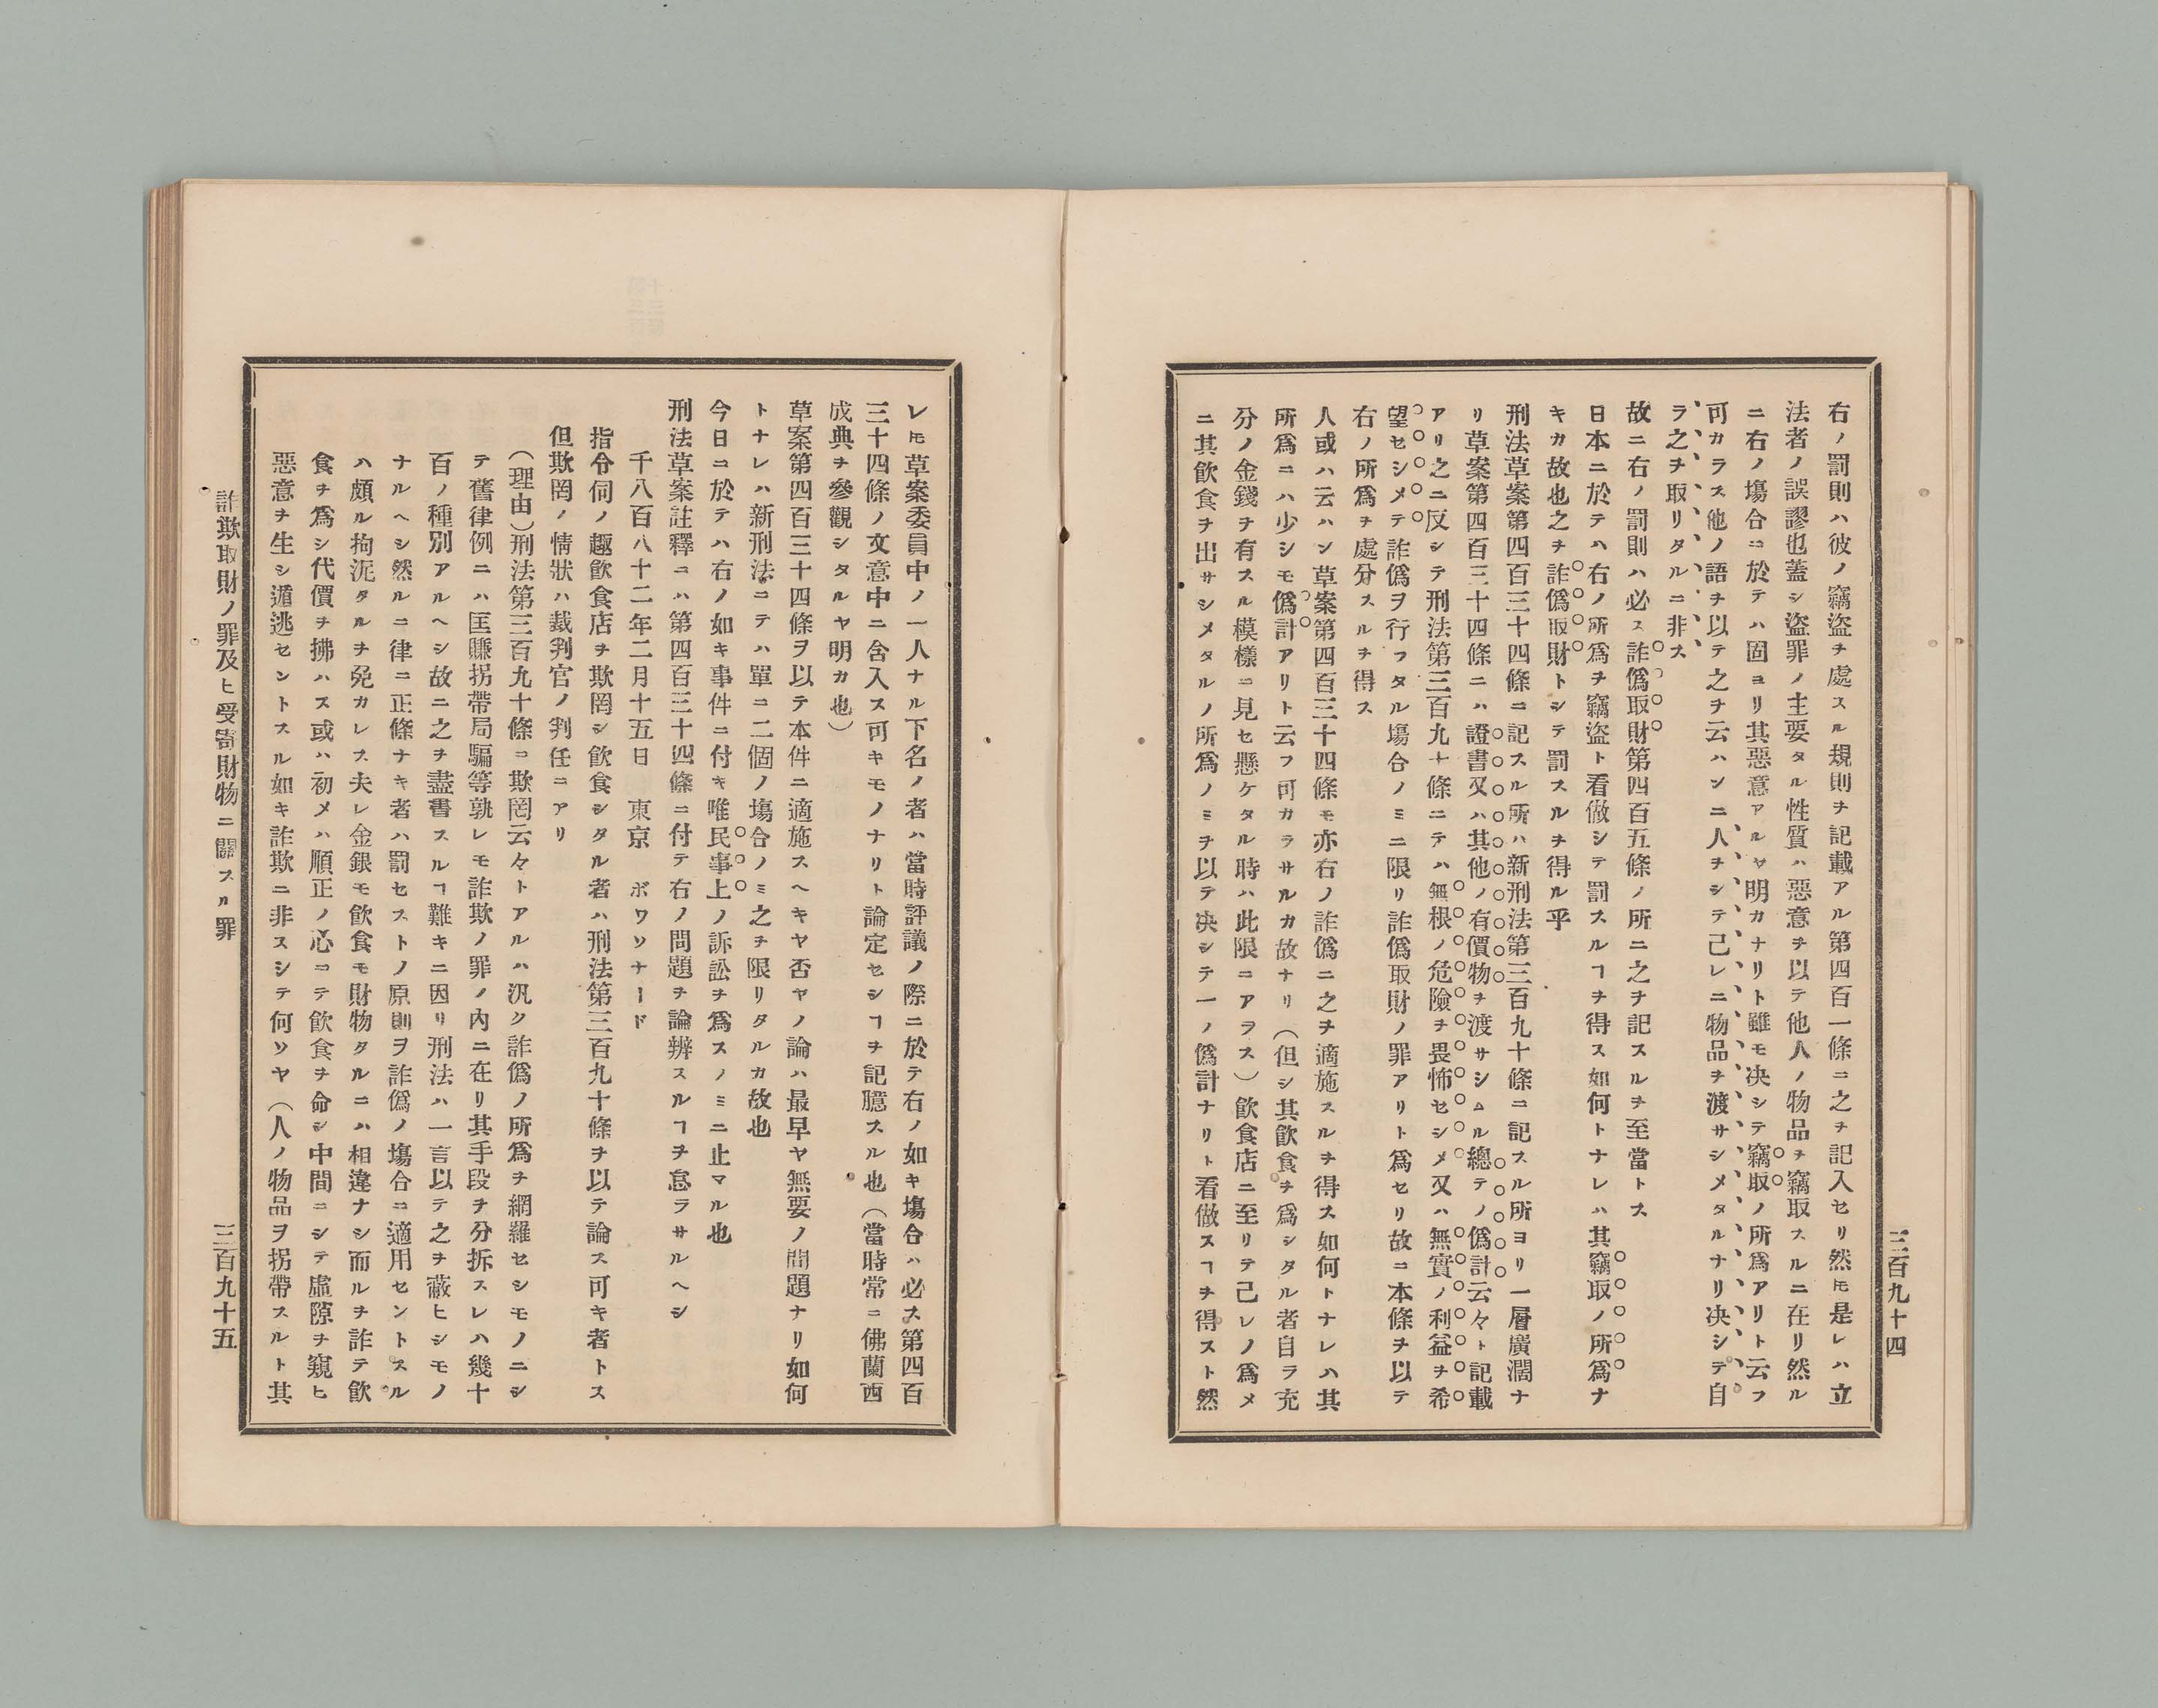 三百九十四
右ノ罰則ハ彼ノ竊盜ヲ處スル規則ヲ記載アル第四百一條ニ之ヲ記入セリ然𪜈是レハ立
法者ノ誤謬也蓋シ盜罪ノ主要タル性質ハ惡意ヲ以テ他人ノ物品ヲ竊取スルニ在リ然ル
ニ右ノ塲合ニ於テハ固ヨリ其惡意アルヤ明カナリト雖モ决シテ竊取ノ所爲アリト云フ
可カラス他ノ語ヲ以テ之ヲ云ハンニ人ヲシテ己レニ物品ヲ渡サシメタルナリ决シテ自
ラ之ヲ取リタルニ非ス
故ニ右ノ罰則ハ必ス詐僞取財第四百五條ノ所ニ之ヲ記スルヲ至當トス
日本ニ於テハ右ノ所爲ヲ竊盜ト看做シテ罰スルヿヲ得ス如何トナレハ其竊取ノ所爲ナ
キカ故也之ヲ詐僞取財トシテ罰スルヲ得ル乎
刑法草案第四百三十四條ニ記スル所ハ新刑法第三百九十條ニ記スル所ヨリ一層廣濶ナ
リ草案第四百三十四條ニハ證書又ハ其他ノ有價物ヲ渡サシムル總テノ僞計云々ト記載
アリ之ニ反シテ刑法第三百九十條ニテハ無根ノ危險ヲ畏怖セシメ又ハ無實ノ利益ヲ希
望セシメテ詐僞ヲ行フタル塲合ノミニ限リ詐僞取財ノ罪アリト爲セリ故ニ本條ヲ以テ
右ノ所爲ヲ處分スルヲ得ス
人或ハ云ハン草案第四百三十四條モ亦右ノ詐僞ニ之ヲ適施スルヲ得ス如何トナレハ其
所爲ニハ少シモ僞計アリト云フ可カラサルカ故ナリ（但シ其飮食ヲ爲シタル者自ラ充
分ノ金錢ヲ有スル模樣ニ見セ懸ケタル時ハ此限ニアラス）飮食店ニ至リテ己レノ爲メ
ニ其飮食ヲ出サシメタルノ所爲ノミヲ以テ决シテ一ノ僞計ナリト看做スヿヲ得スト然
レ𪜈草案委員中ノ一人ナル下名ノ者ハ當時評議ノ際ニ於テ右ノ如キ塲合ハ必ス第四百
三十四條ノ文意中ニ含入ス可キモノナリト論定セシヿヲ記臆スル也（當時常ニ佛蘭西
成典ヲ參觀シタルヤ明カ也）
草案第四百三十四條ヲ以テ本件ニ適施スヘキヤ否ヤノ論ハ最早ヤ無要ノ問題ナリ如何
トナレハ新刑法ニテハ單ニ二個ノ塲合ノミ之ヲ限リタルカ故也
今日ニ於テハ右ノ如キ事件ニ付キ唯民事上ノ訴訟ヲ爲スノミニ止マル也
刑法草案註釋ニハ第四百三十四條ニ付テ右ノ問題ヲ論辨スルヿヲ怠ラサルヘシ
千八百八十二年二月十五日　東京　ボワソナード
指令伺ノ趣飮食店ヲ欺罔シ飮食シタル者ハ刑法第三百九十條ヲ以テ論ス可キ者トス
但欺罔ノ情狀ハ裁判官ノ判任ニアリ
（理由）刑法第三百九十條ニ欺罔云々トアルハ汎ク詐僞ノ所爲ヲ網羅セシモノニシ
テ舊律例ニハ匡賺拐帶局騙等孰レモ詐欺ノ罪ノ內ニ在リ其手段ヲ分拆スレハ幾十
百ノ種別アルヘシ故ニ之ヲ盡書スルヿ難キニ因リ刑法ハ一言以テ之ヲ蔽ヒシモノ
ナルヘシ然ルニ律ニ正條ナキ者ハ罰セストノ原則ヲ詐僞ノ塲合ニ適用セントスル
ハ頗ル拘泥タルヲ免カレス夫レ金銀モ飮食モ財物タルニハ相違ナシ而ルヲ詐テ飮
食ヲ爲シ代價ヲ拂ハス或ハ初メハ順正ノ心ニテ飮食ヲ命シ中間ニシテ虛隙ヲ窺ヒ
惡意ヲ生シ遁逃セントスル如キ詐欺ニ非スシテ何ソヤ（人ノ物品ヲ拐帶スルト其
詐欺取財ノ罪及ヒ受寄財物ニ關スル罪
三百九十五